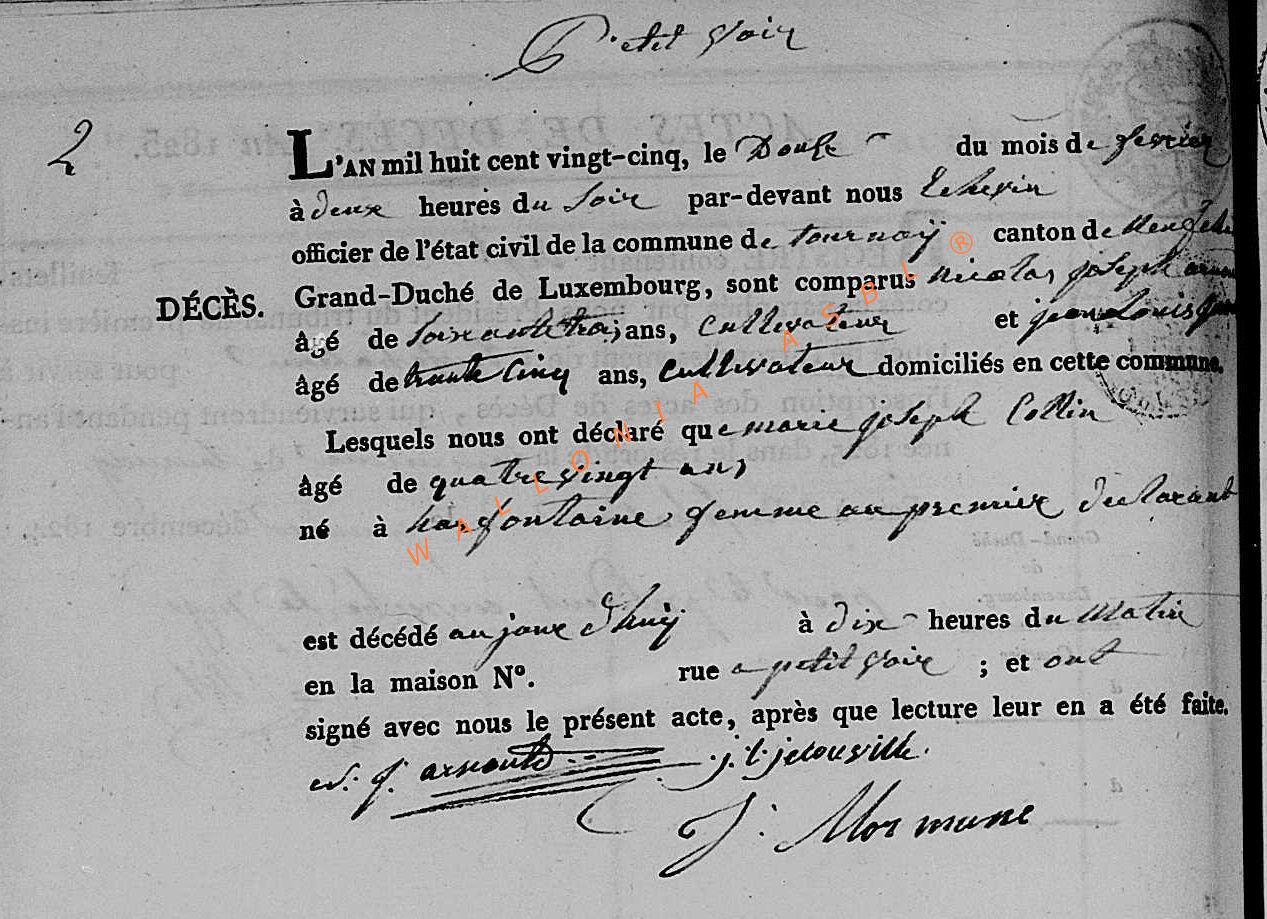 Petit Voir
2
L'AN mil huit cent vingt-cinq, le Douse du mois de fevrier
à deux heures du soir par-devant nous Echevin
officier de l'état civil de la commune de tournay canton de
DÉCÈS. Grand-Duché de Luxembourg, sont comparus nicolas joseph
âgé de soixante trois ans, Cultivateur et jean louis
âgé de trante Cinq ans, Cultivateur domiciliés en cette commune.
Lesquels nous ont déclaré que marie joseph Collin
âgé de quatre vingt ans
né à fontaine femme au premier declarant
est décédé au jour d'huÿ à dix heures du Matin
en la maison N°. rue a petit Voir ; et ont
signé avec nous le présent acte, après que lecture leur en a été faite.
n. j. arnould j. l. jelouville.
J. Mormune
WALLONIA ASBL ®